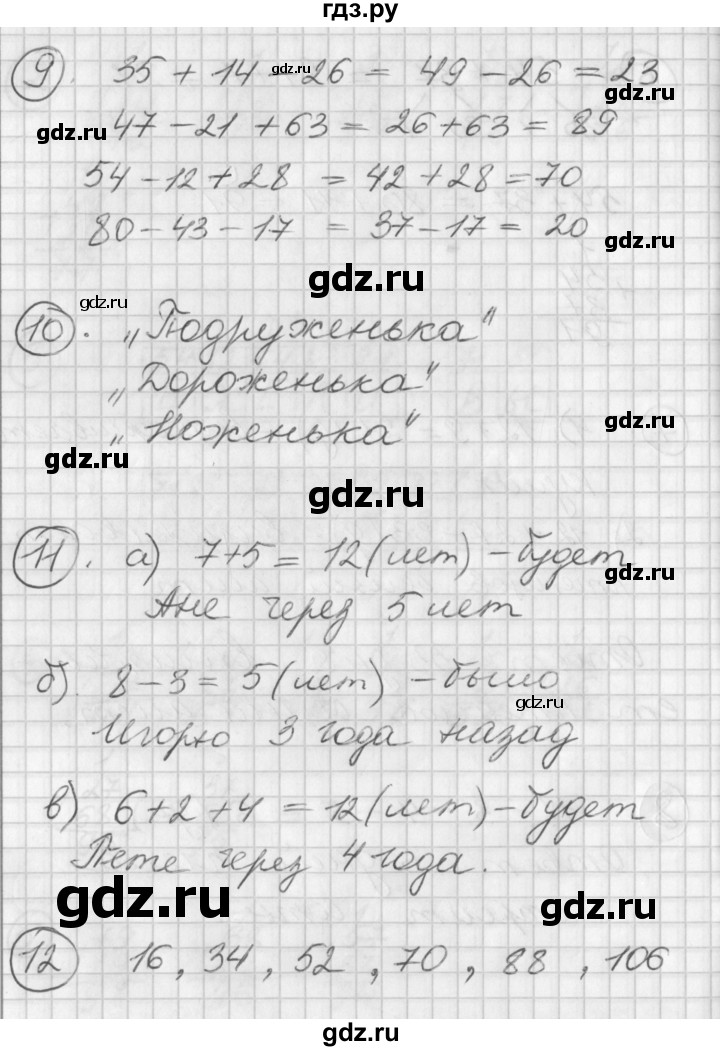 гдз.ру
9. 35 + 14 - 26 = 49 - 26 = 23
gdz.ru
gdz.ru
47 - 21 + 63 = 26 + 63 = 89
gdz.ru
54 - 12 + 28 = 42 + 28 = 70
80 - 43 - 17 = 37 - 17 = 20
gdz.ru
gdz.ru
gdz.ru
10. „Подруженька“
„Дороженька“
„Ноженька“
gdz.ru
gdz.ru
gdz.ru
11. а) 7+5 = 12 (лет) - будет
gdz.ru
Ане через 5 лет
б) 8 - 3 = 5 (лет) - было
gdz.ru
Игорю 3 года назад
в) 6+2+4 = 12 (лет) - будет
Пете через 4 года.
gdz.ru
gdz.ru
12 16, 34, 52, 70, 88, 106
gdz.ru